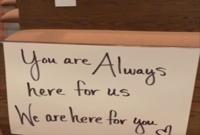 You are Always
here for us
We are here for you